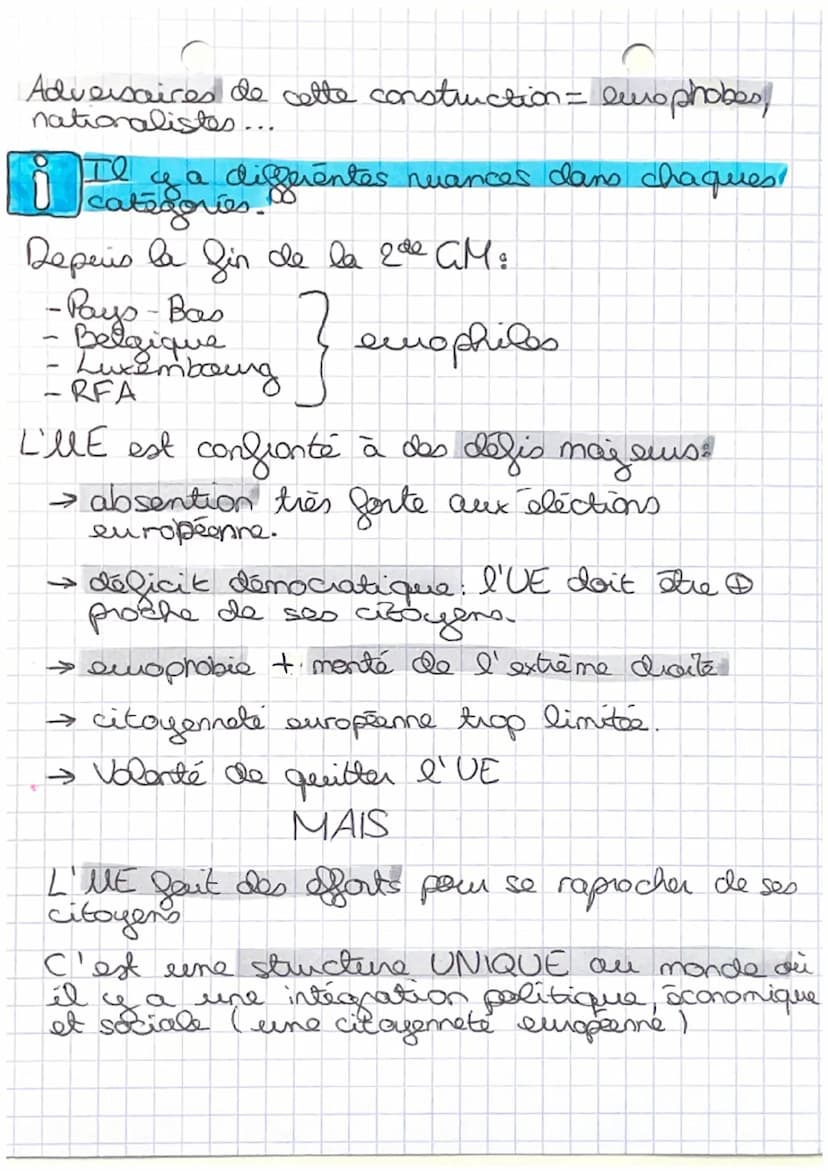 Adversaires de cette construction = europhobes,
nationalistes...
i Il y a différentes nuances dans chaques
catégories.
Depuis la fin de la 2de GM:
- Pays-Bas
- Belgique
- Luxembourg
- RFA
} europhiles
L'UE est confronté à des défis majeurs:
→ absention très forte aux éléctions
européenne.
→ déficit démocratique: l'UE doit être ⊕
proche de ses citoyens.
→ europhobie + monté de l'extrême droite
→ citoyenneté européenne trop limitée.
→ Volonté de quitter l'UE
MAIS
L'UE fait des efforts pour se raprocher de ses
citoyens
C'est une structure UNIQUE au monde où
il y a une intégration politique, économique
et sociale (une citoyenneté européenne)